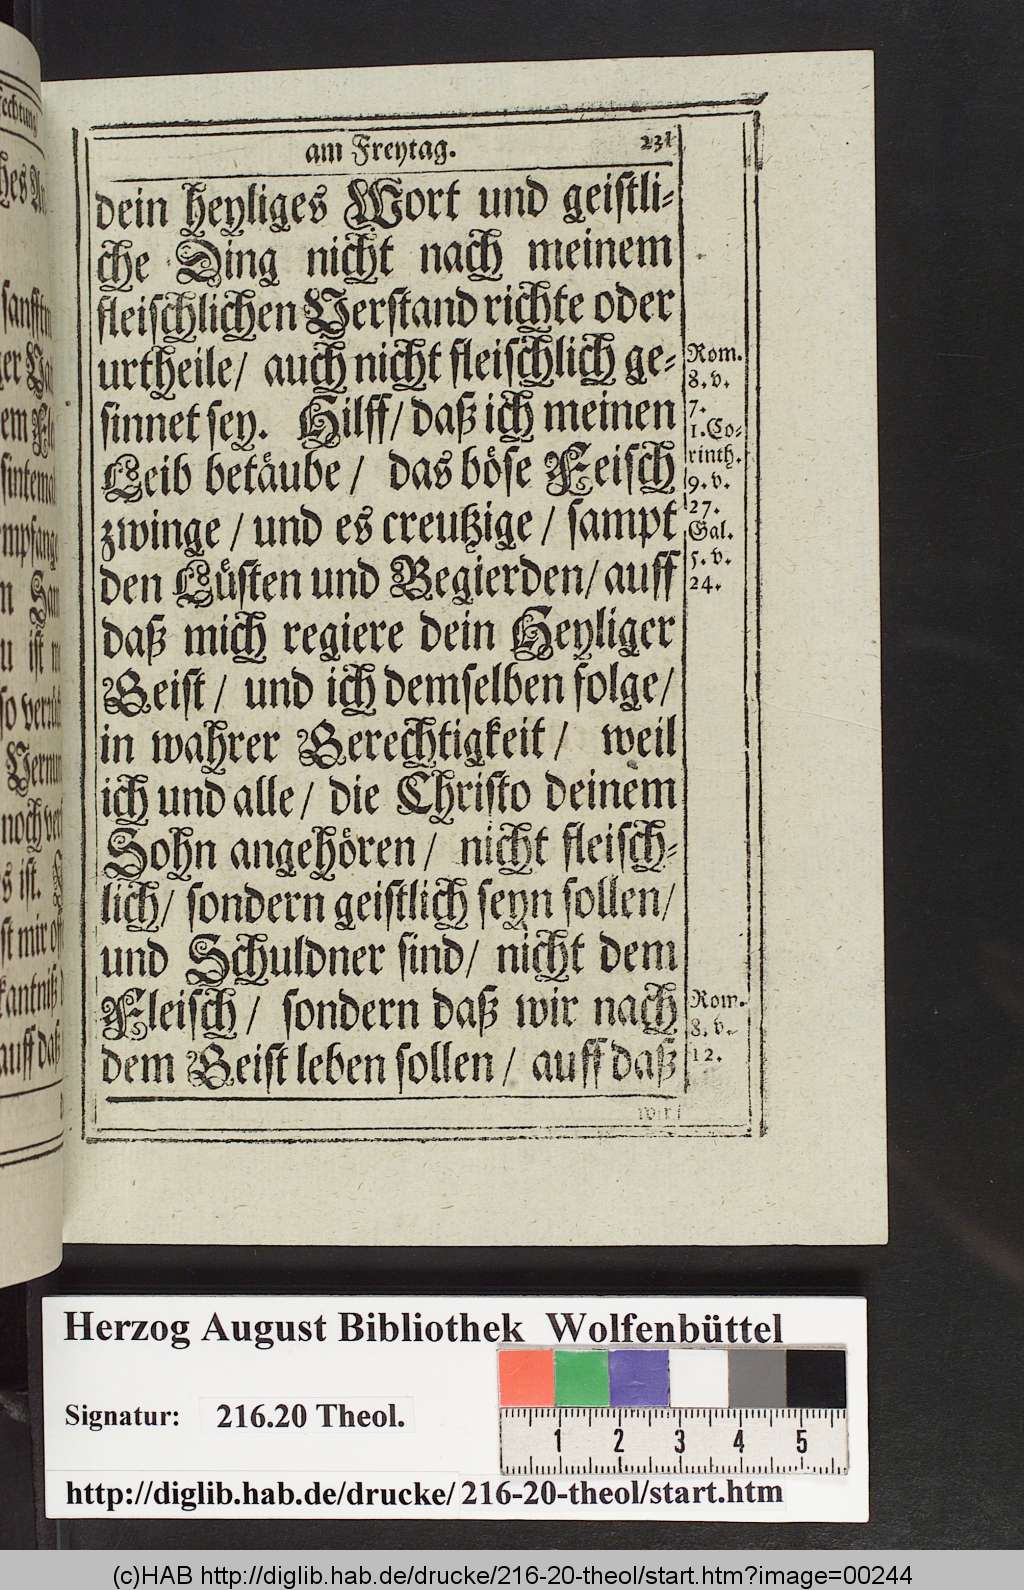 am Freytag. 231
dein heyliges Wort und geistli-
che Ding nicht nach meinem
fleischlichen Verstand richte oder
urtheile/ auch nicht fleischlich ge-
sinnet sey. Hilff/ daß ich meinen
Leib betäube/ das böse Feisch
zwinge/ und es creutzige/ sampt
den Lüsten und Begierden/ auff
daß mich regiere dein Heyliger
Geist/ und ich demselben folge/
in wahrer Gerechtigkeit/ weil
ich und alle/ die Christo deinem
Sohn angehören/ nicht fleisch-
lich/ sondern geistlich seyn sollen/
und Schuldner sind/ nicht dem
Fleisch/ sondern daß wir nach
dem Geist leben sollen/ auff daß
wir
Rom.
8. v.
7.
1. Co-
rinth.
9. v.
27.
Gal.
5. v.
24.
Rom.
8. v.
12.
Herzog August Bibliothek Wolfenbüttel
Signatur: 216.20 Theol.
1 2 3 4 5
http://diglib.hab.de/drucke/216-20-theol/start.htm
(c)HAB http://diglib.hab.de/drucke/216-20-theol/start.htm?image=00244